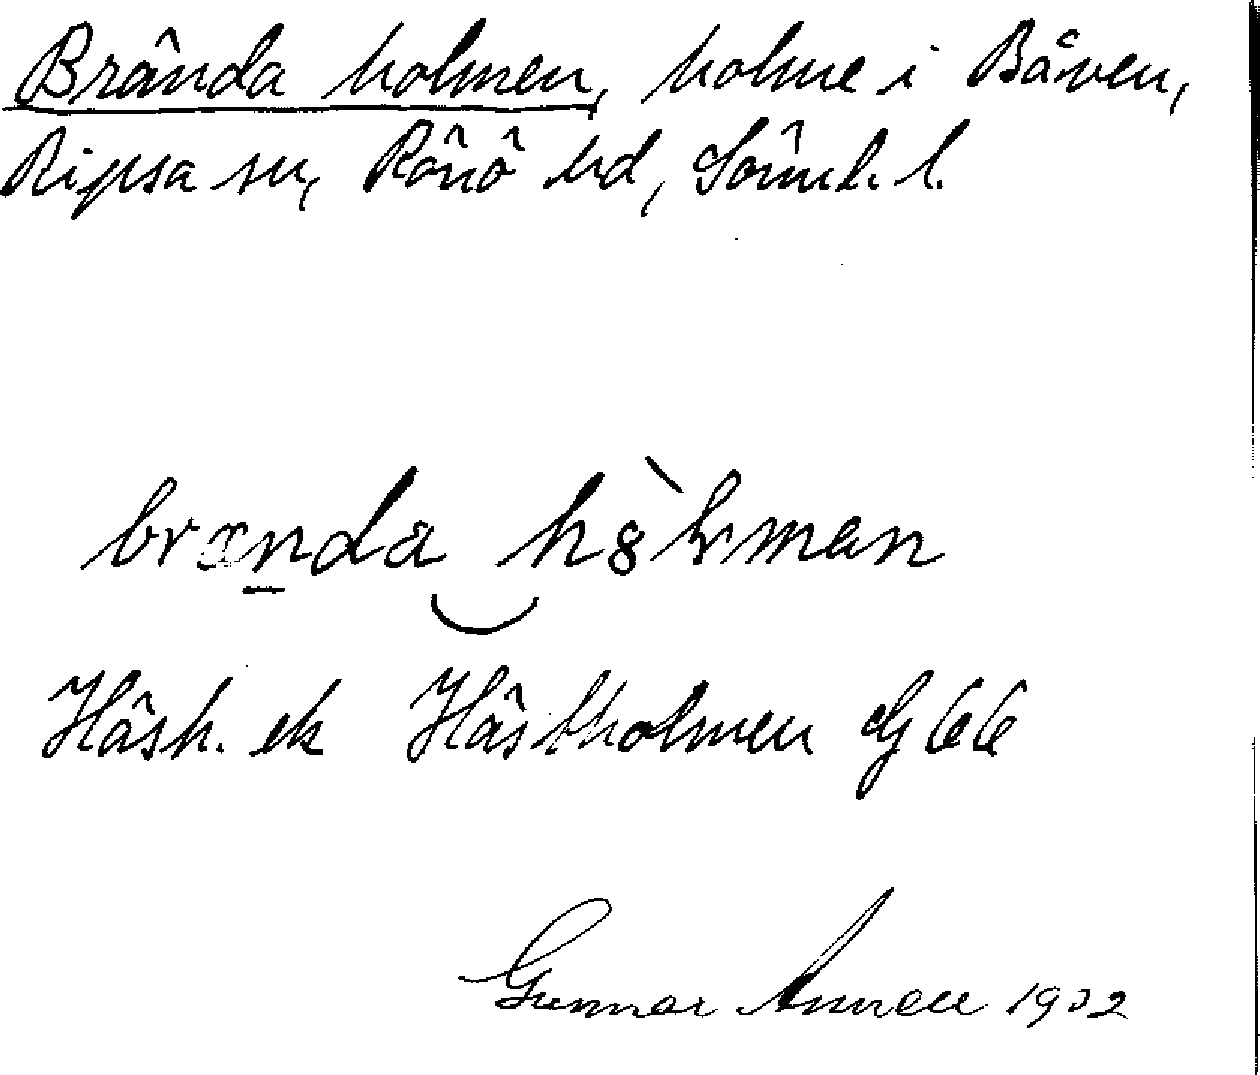 Brända holmen, holme i Båven,
Ripsa sn, Rönö hd, Söderm. l.
brænda hòlman
Häsh. ek Hästholmen G 66
Gunnar Annell 1932